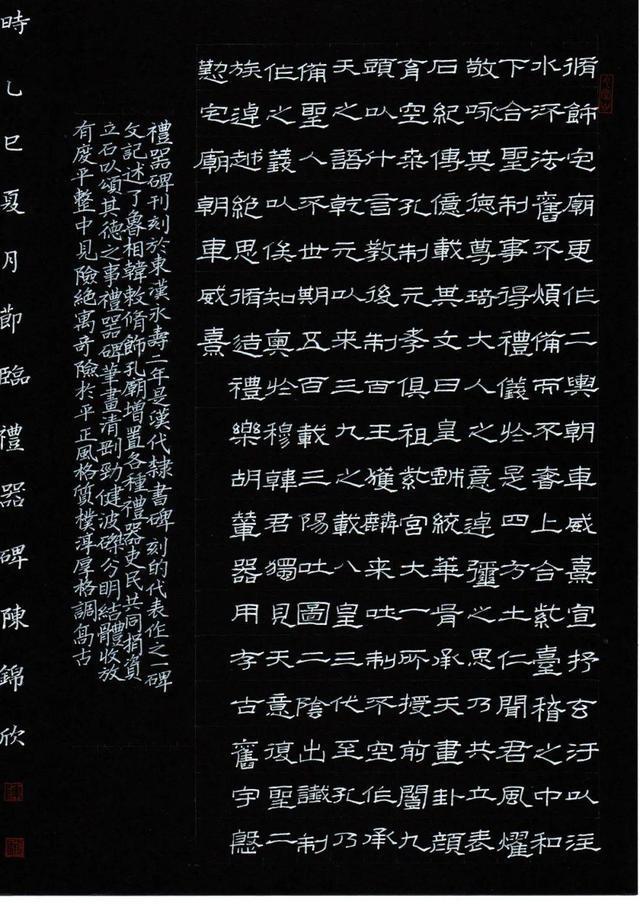 脩飾宅廟更作二輿朝車威熹宣抒玄汙以注
水流法舊不煩備而不奢上合紫臺稽之中和
下合聖制事得禮儀於是四方土仁聞君風燿
敬咏其德尊琦大人之意逴彌之思乃共立表
石紀傳億載其文曰皇戲統華胥承天畫卦顏
育空桑孔制元孝俱祖紫宮大一所授前闓九
頭以什言教後制百王獲麟來吐制不空作承
天之語乾元以來三九之載八皇三代至孔乃
備聖人不世期五百載三陽吐圖二陰出讖制
作之義以俟知奧於穆韓君獨見天意復聖二
族逴越絕思脩造禮樂胡輦器用存古舊宇慇
懃宅廟朝車威熹
禮器碑刊刻於東漢永壽二年是漢代隸書碑刻的代表作之一碑
文記述了魯相韓敕脩飾孔廟增置各種禮器吏民共同捐資
立石以頌其德之事禮器碑筆畫清剛勁健波磔分明結體收放
有度平整中見險絕寓奇險於平正風格質樸淳厚格調高古
時乙巳夏月節臨禮器碑陳錦欣